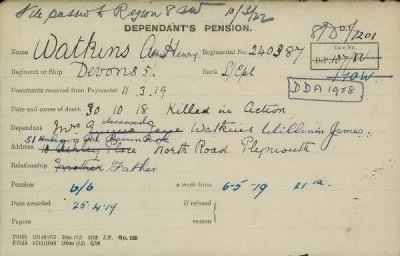 File passed to Region 8 SW 10/3/22
DEPENDANT'S PENSION.
8/D/D/1201
Name Watkins Wm Henry. Regimental No. 240387
Case No.
Regiment or Ship Devons 5. Rank L/Cpl
DDA 1958
Documents received from Paymaster 11.3.19
Date and cause of death 30 10 18 Killed in Action
Dependant Mrs deceased Watkins William James.
Address Place North Road Plymouth
Relationship Mother Father
Pension 6/6 a week from 6-5-19
Date awarded 25-4-19 If refused
Papers reason